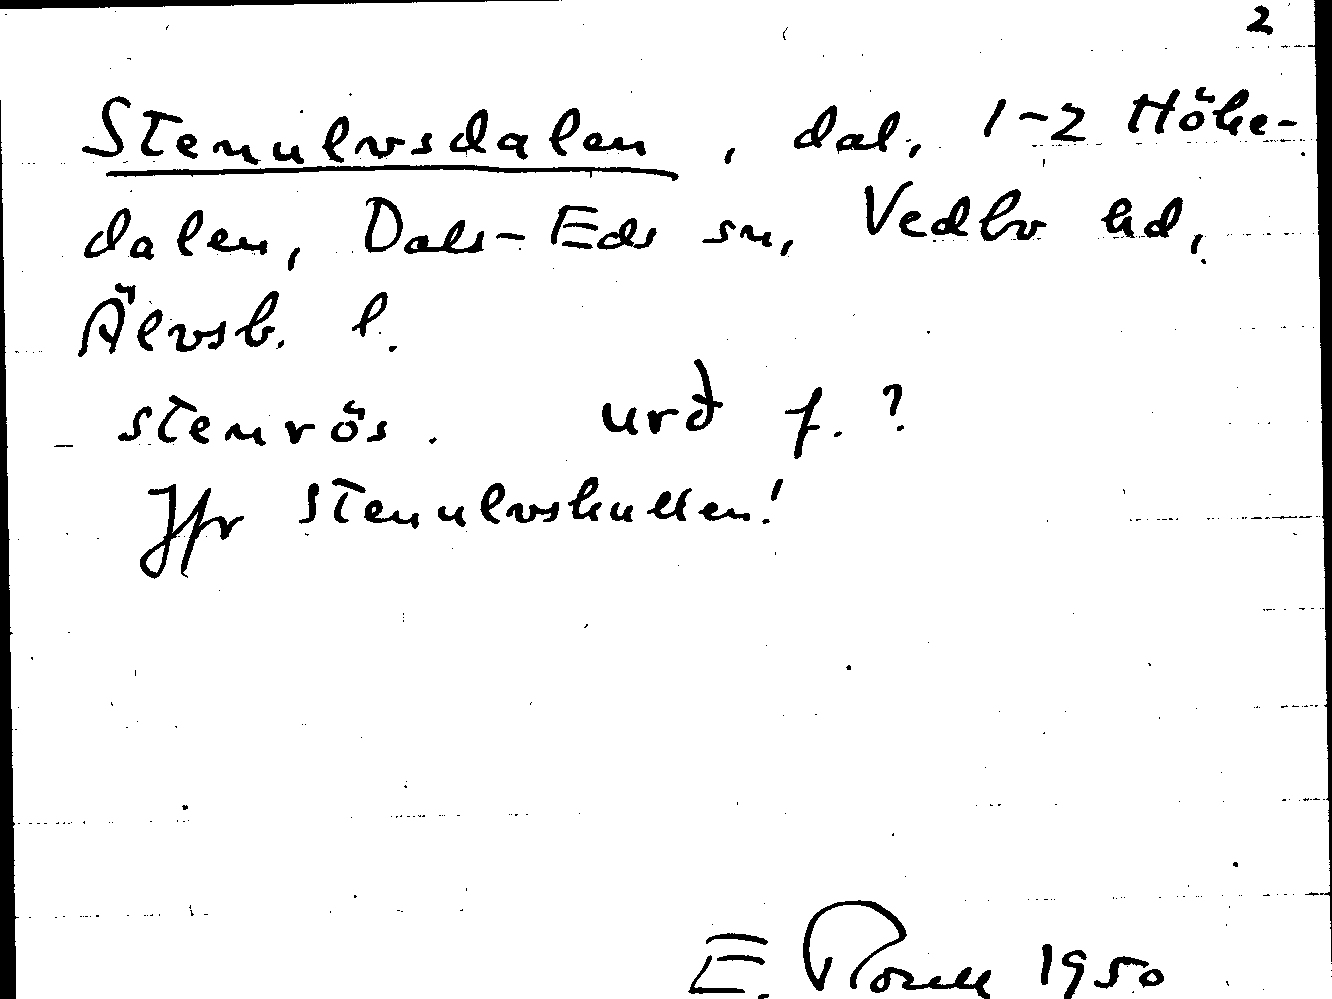 2
Stenulvsdalen, dal, 1-2 Höhe-
dalen, Dals-Eds sn, Vedbo hd,
Älvsb. l.
stenrös. urð f. ?
Jfr Stenulvskullen!
E. 1950